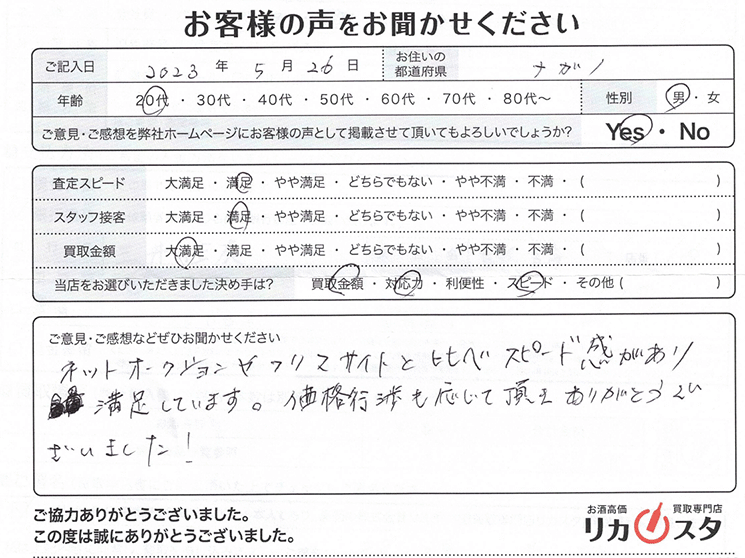 お客様の声をお聞かせください
ご記入日 2023 年 5 月 26 日 お住いの都道府県 ナガノ
年齢 20代 ・ 30代 ・ 40代 ・ 50代 ・ 60代 ・ 70代 ・ 80代～ 性別 男 ・ 女
ご意見・ご感想を弊社ホームページにお客様の声として掲載させて頂いてもよろしいでしょうか? Yes ・ No
査定スピード 大満足 ・ 満足 ・ やや満足 ・ どちらでもない ・ やや不満 ・ 不満 ・ ( )
スタッフ接客 大満足 ・ 満足 ・ やや満足 ・ どちらでもない ・ やや不満 ・ 不満 ・ ( )
買取金額 大満足 ・ 満足 ・ やや満足 ・ どちらでもない ・ やや不満 ・ 不満 ・ ( )
当店をお選びいただきました決め手は? 買取金額 ・ 対応力 ・ 利便性 ・ スピード ・ その他 ( )
ご意見・ご感想などぜひお聞かせください
ネットオークションやフリマサイトと比べスピード感があり
満足しています。価格行渉も応じて頂き ありがとうご
ざいました!
ご協力ありがとうございました。
この度は誠にありがとうございます。
お酒高価 買取専門店
リカスタ